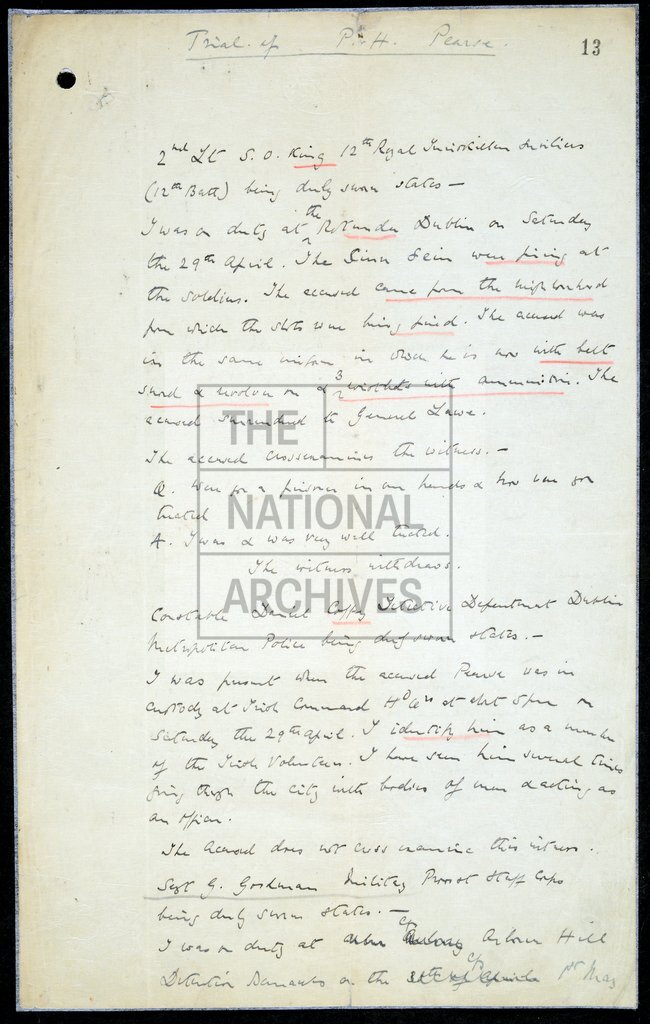 Trial of P. H. Pearse.
13
2nd Lt S. O. King 12th Royal Inniskillen Fusiliers
(12th Batt) being duly sworn states —
I was on duty at the Rotunda Dublin on Saturday
the 29th April. The Sinn Fein were firing at
the soldiers. The accused came from the neighbourhood
from which the shots were being fired. The accused was
in the same uniform in which he is now with belt
sword & revolver on & with ammunition. The
accused surrendered to General Lowe.
The accused crossexamines the witness. —
Q. Were you a prisoner in our hands & how were you
treated
A. I was & was very well treated.
The witness withdraws.
Constable Daniel Coffey Detective Department Dublin
Metropolitan Police being duly sworn states. —
I was present when the accused Pearse was in
custody at Irish Command Hd Qrs at abt 5pm on
Saturday the 29th April. I identify him as a member
of the Irish Volunteers. I have seen him several times
going through the city with bodies of men & acting as
an officer.
The accused does not cross examine this witness.
Sergt G. Goodman Military Provost Staff Corps
being duly sworn states. —
I was on duty at Arbour Hill
Detention Barracks on the 1st May
THE
NATIONAL
ARCHIVES